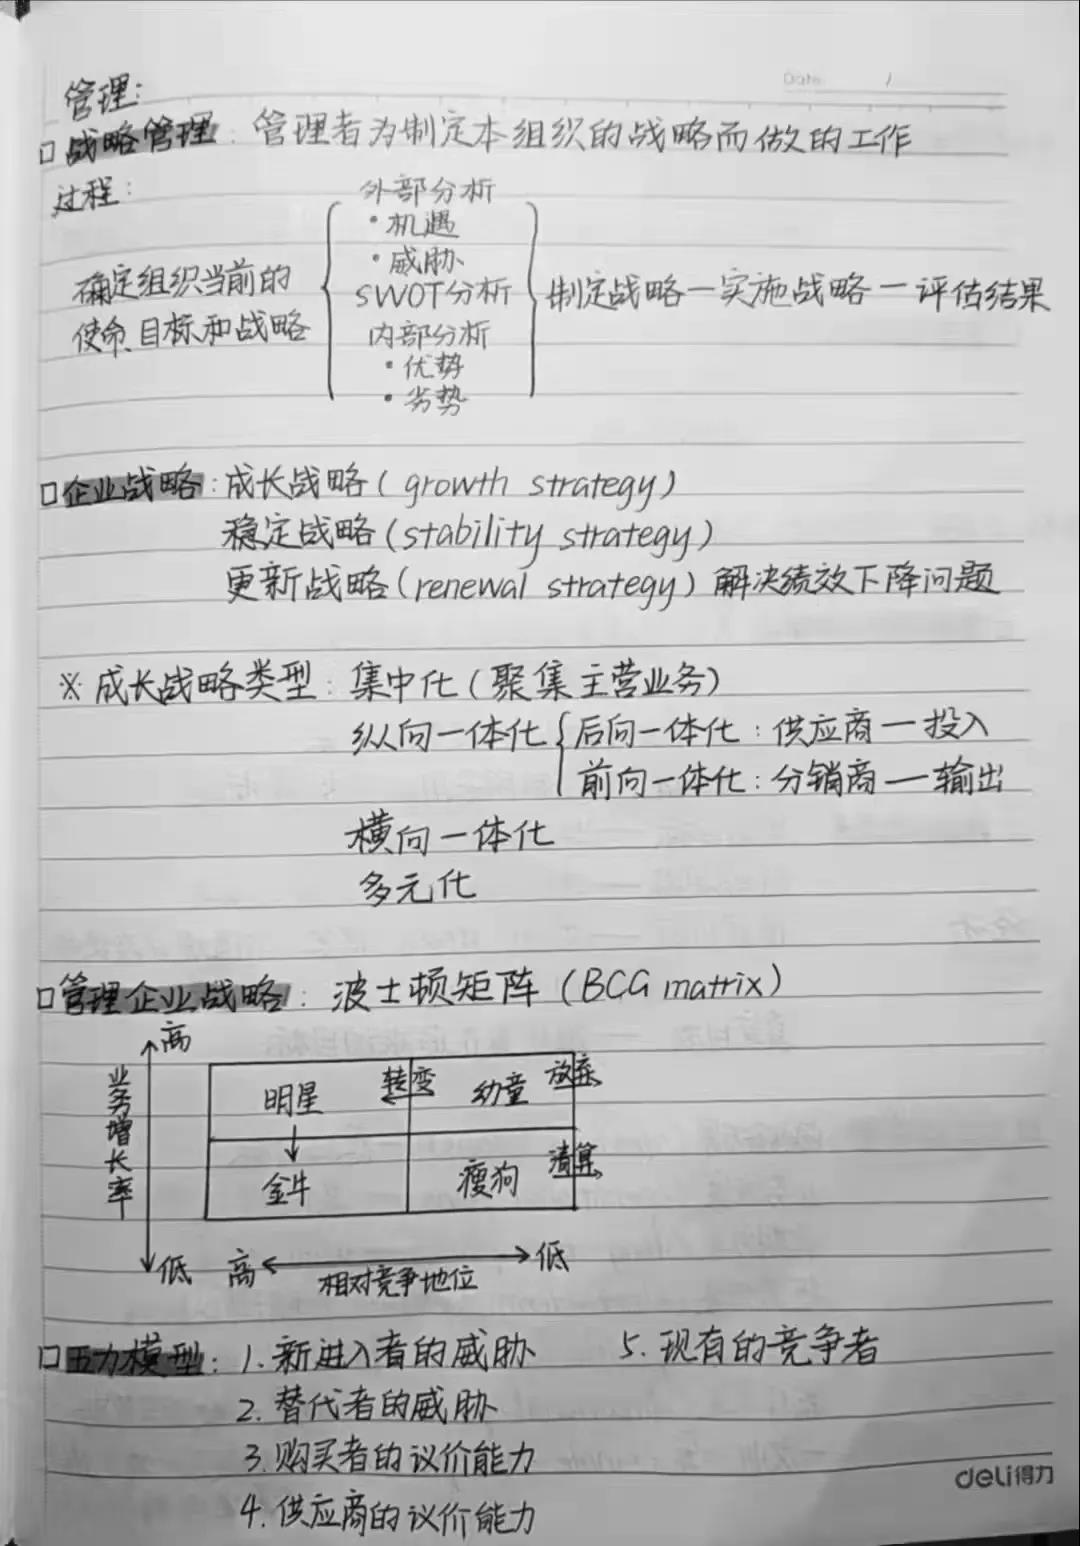 Date /
管理:
□战略管理: 管理者为制定本组织的战略而做的工作
过程:
确定组织当前的
使命、目标和战略
外部分析
·机遇
·威胁
SWOT分析
内部分析
·优势
·劣势
制定战略—实施战略—评估结果
□企业战略: 成长战略(growth strategy)
稳定战略(stability strategy)
更新战略(renewal strategy) 解决绩效下降问题
※成长战略类型: 集中化(聚集主营业务)
纵向一体化{后向一体化: 供应商—投入
前向一体化: 分销商—输出
横向一体化
多元化
□管理企业战略: 波士顿矩阵(BCG matrix)
高
业务增长率
明星 转变 幼童 放弃
金牛 瘦狗 清算
低 高 相对竞争地位 低
□五力模型: 1.新进入者的威胁 5.现有的竞争者
2.替代者的威胁
3.购买者的议价能力
4.供应商的议价能力
deli得力